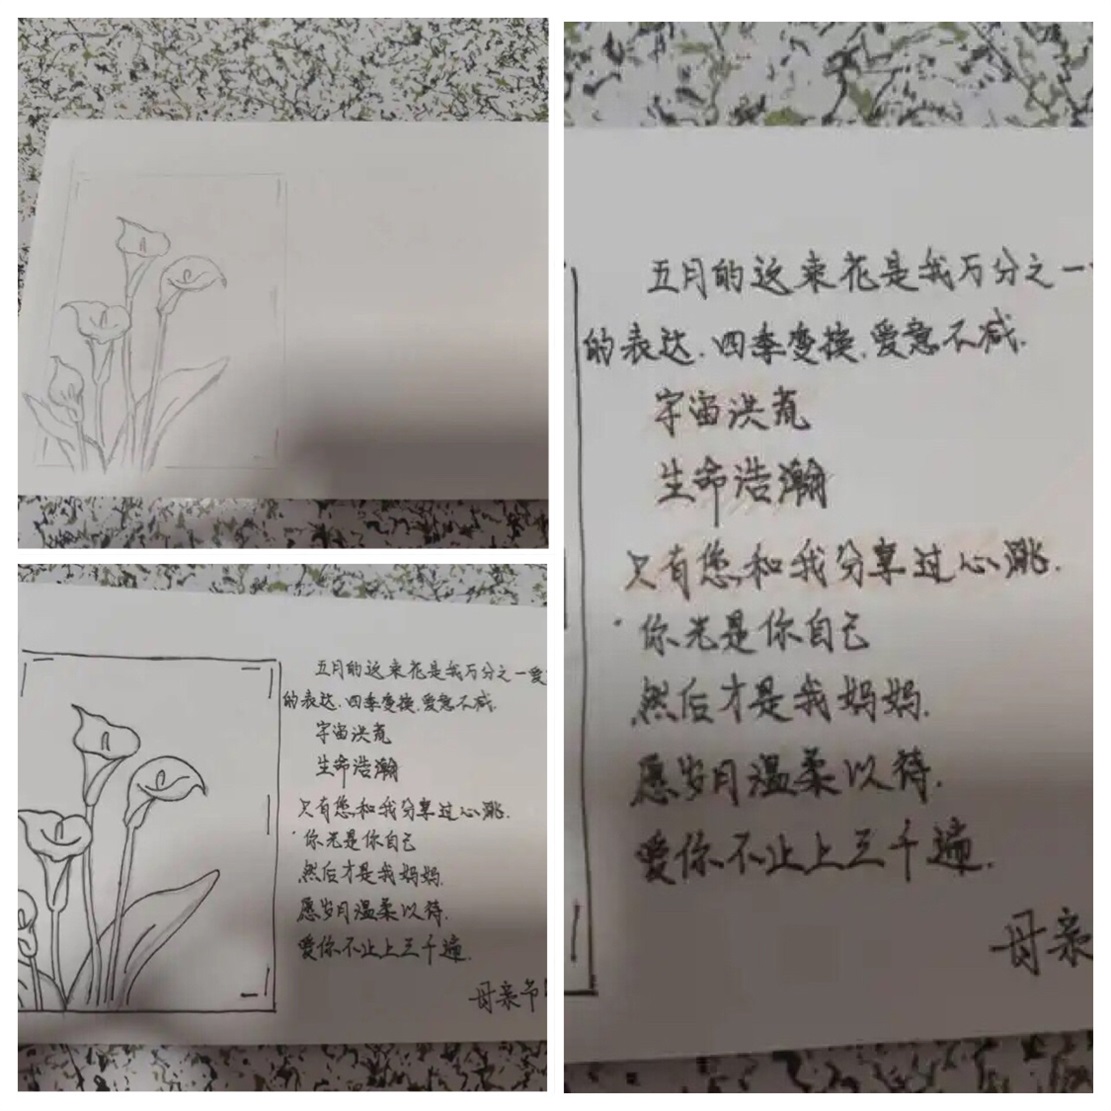 五月的这束花是我万分之一爱
的表达.四季变换.爱意不减.
宇宙洪荒
生命浩瀚
只有您和我分享过心跳.
你先是你自己
然后才是我妈妈.
愿岁月温柔以待.
爱你不止上三千遍.
母亲节
五月的这束花是我万分之一
的表达.四季变换.爱意不减.
宇宙洪荒
生命浩瀚
只有您和我分享过心跳.
你先是你自己
然后才是我妈妈.
愿岁月温柔以待.
爱你不止上三千遍.
母亲